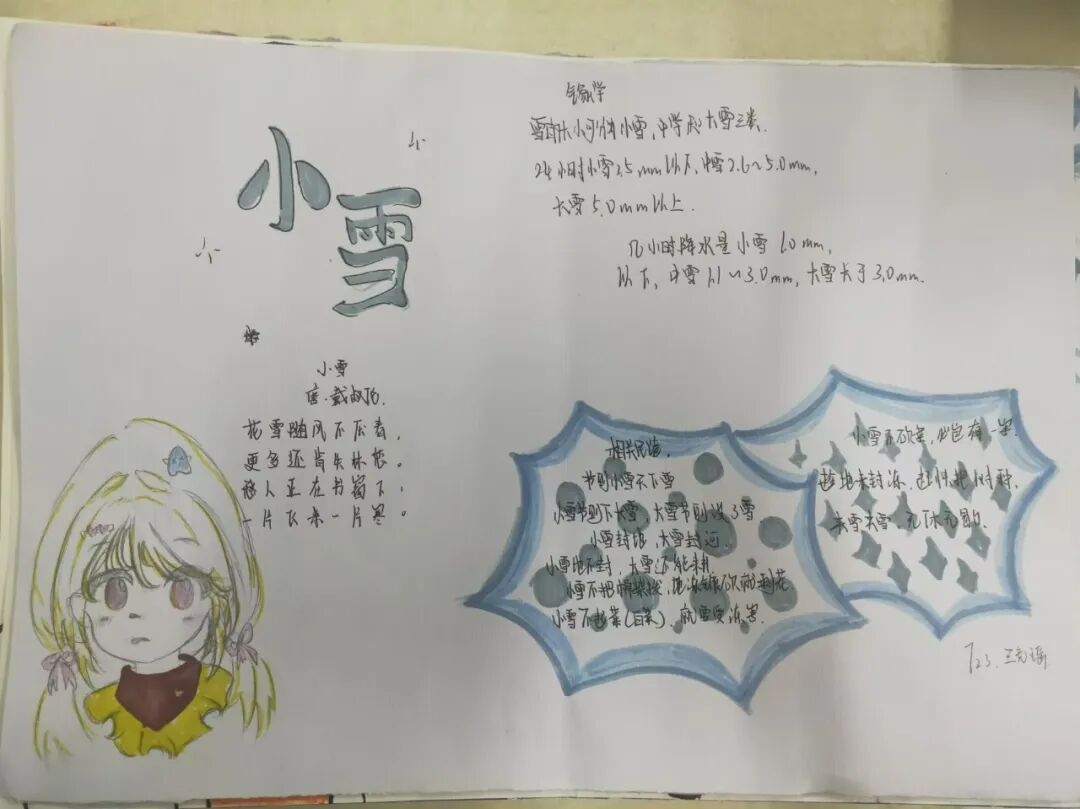 小雪
小雪
唐·戴叔伦
花雪随风不厌看,
更多还肯失林峦。
愁人正在书窗下,
一片飞来一片寒。
气象学
雪大小可分为小雪,中学和大雪三类.
24小时小雪2.5mm以下,中雪2.6~5.0mm,
大雪5.0mm以上.
几小时降水量小雪1.0mm,
以下,中雪1.1~3.0mm,大雪大于3.0mm.
相关民谚,
节到小雪天下雪
小雪节到下大雪,大雪节到没3雪
小雪封地,大雪封河.
小雪地不封,大雪还能耕.
小雪不把棉柴拔,地冻镰砍就剩茬
小雪不起菜(白菜),就要受冻害.
小雪不砍菜,必定有一失.
趁地未封冻,赶快把树种,
大雪,冗冰冗
723.